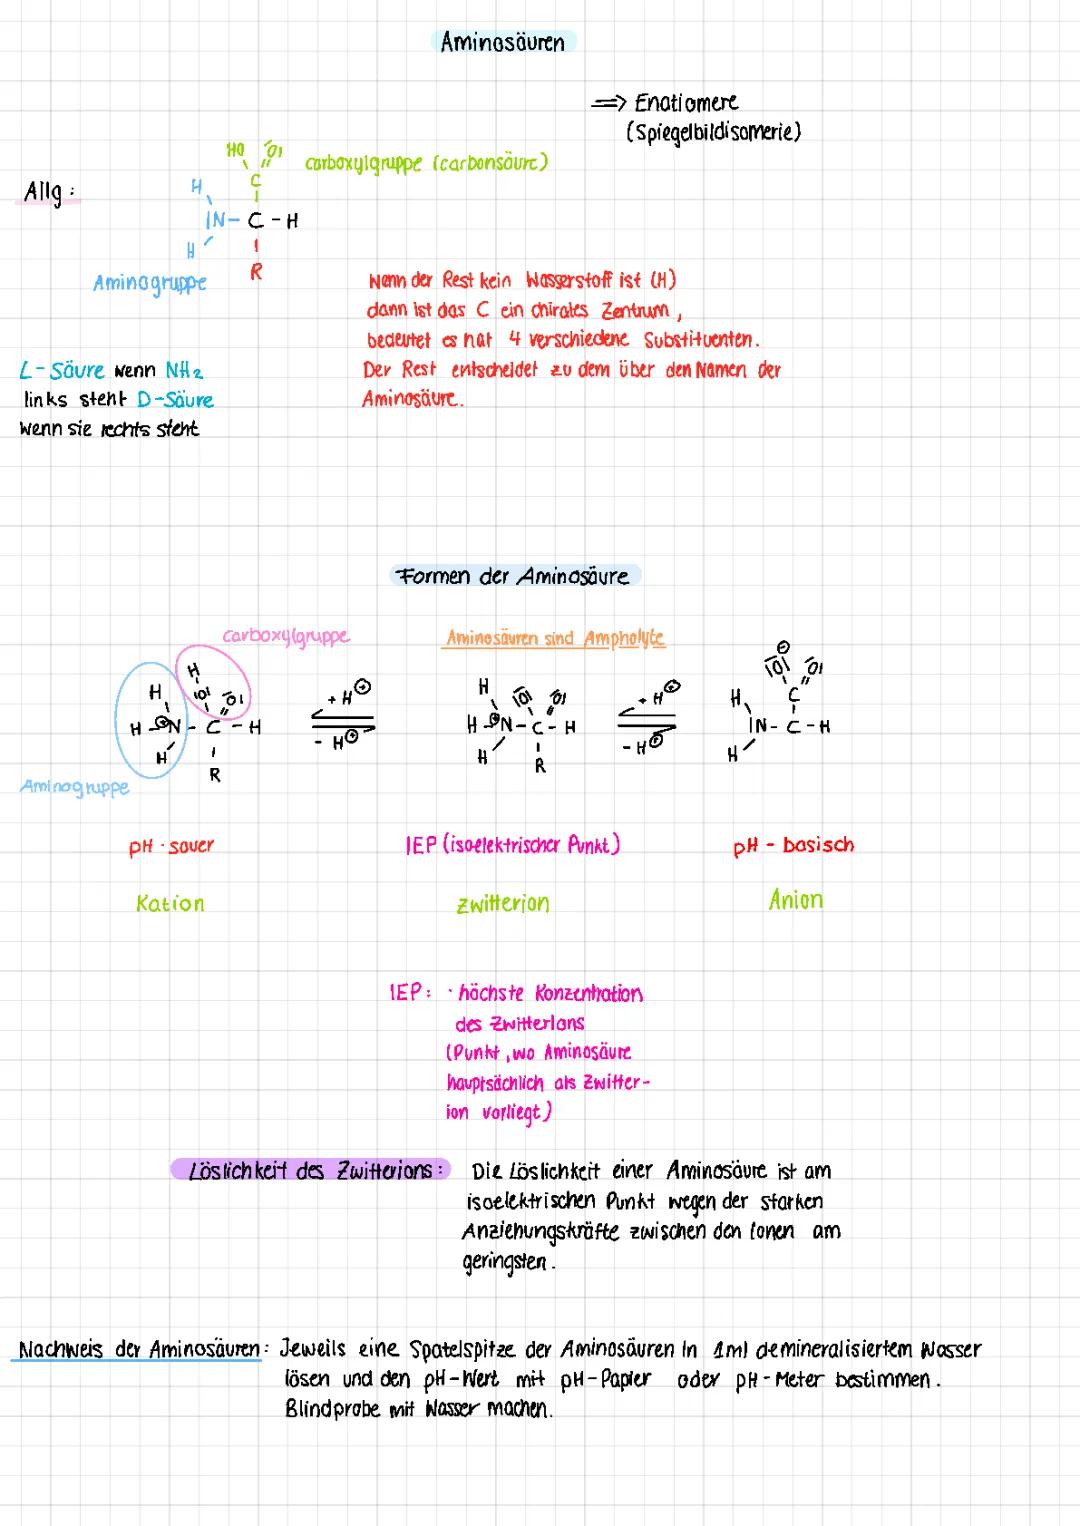 Aminosäuren
=> Enatiomere
(Spiegelbildisomerie)
HO O
carboxylgruppe (carbonsäure)
Allg:
H C
IN - C - H
H
R
Aminogruppe
Wenn der Rest kein Wasserstoff ist (H)
dann ist das C ein chirales Zentrum,
bedeutet es hat 4 verschiedene Substituenten.
Der Rest entscheidet zu dem über den Namen der
Aminosäure.
L-Säure wenn NH2
links steht D-Säure
wenn sie rechts steht
Formen der Aminosäure
carboxylgruppe
Aminosäuren sind Ampholyte
H
H IOI O
H - ⊕N - C - H
H
R
+ H⊕
- H⊕
H IOI O
H - ⊕N - C - H
H
R
+ H⊕
- H⊕
⊖
IOI O
H C
IN - C - H
H
Aminogruppe
pH - sauer
IEP (isoelektrischer Punkt)
pH - basisch
Kation
zwitterion
Anion
IEP: · höchste Konzentration
des Zwitterions
(Punkt, wo Aminosäure
hauptsächlich als Zwitter-
ion vorliegt)
Löslichkeit des Zwitterions: Die Löslichkeit einer Aminosäure ist am
isoelektrischen Punkt wegen der starken
Anziehungskräfte zwischen den Ionen am
geringsten.
Nachweis der Aminosäuren: Jeweils eine Spatelspitze der Aminosäuren in 1ml demineralisiertem Wasser
lösen und den pH-Wert mit pH-Papier oder pH-Meter bestimmen.
Blindprobe mit Wasser machen.